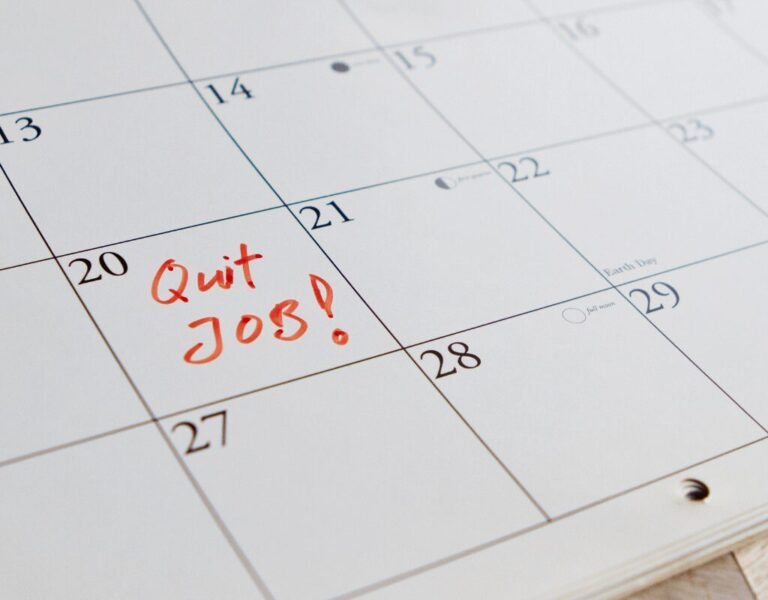 13
14
15
16
20
Quit
JOB!
21
22
Earth Day
23
27
28
full moon
29